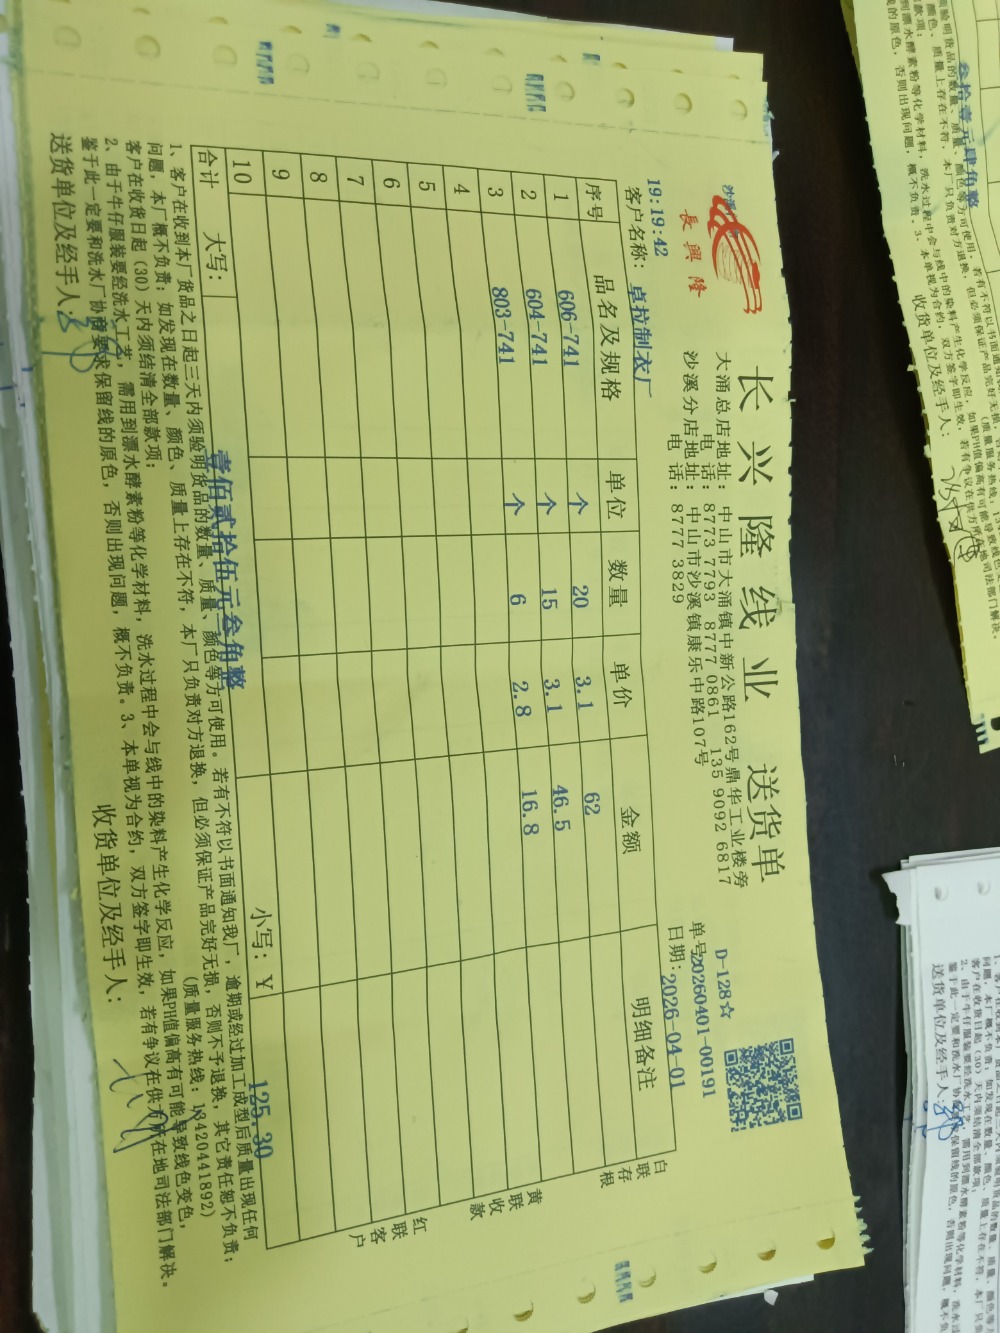 长兴隆线业 送货单
長興隆
大涌总店地址：中山市大涌镇中新公路162号鼎华工业楼旁
电话：8773 7793 8777 0861 135 9092 6817
沙溪分店地址：中山市沙溪镇康乐中路107号
电话：8777 3829
D-128☆
单号20260401-00191
日期：2026-04-01
19:19:42
客户名称：卓拉制衣厂
序号 品名及规格 单位 数量 单价 金额 明细备注
1 606-741 个 20 3.1 62
2 604-741 个 15 3.1 46.5
3 803-741 个 6 2.8 16.8
4
5
6
7
8
9
10
合计 大写：壹佰贰拾伍元叁角整 小写：Y 125.30
白联存根
黄联收款
红联客户
1、客户在收到本厂货品之日起三天内须验明货品的数量、质量、颜色等方可使用。若有不符以书面通知我厂，逾期或经过加工成型后质量出现任何
问题，本厂概不负责；如发现在数量、颜色、质量上存在不符，本厂只负责对方退换，但必须保证产品完好无损，否则不予退换，其它责任恕不负责；
客户在收货日起（30）天内须结清全部款项； （质量服务热线：13420441892）
2、由于牛仔服装要经洗水工艺，需用到漂水酵素粉等化学材料，洗水过程中会与线中的染料产生化学反应，如果PH值偏高有可能导致线色变色，
鉴于此一定要和洗水厂协商要求保留线的原色，否则出现问题，概不负责。3、本单视为合约，双方签字即生效，若有争议在供方所在地司法部门解决。
送货单位及经手人： 收货单位及经手人：
叁拾壹元肆角整
收货单位及经手人：
送货单位及经手人：